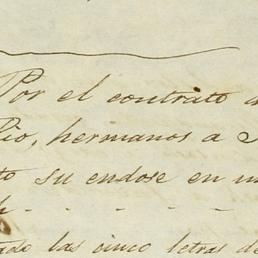 Por el contrato
Rio, hermanos a
su endose en
las cinco letras de